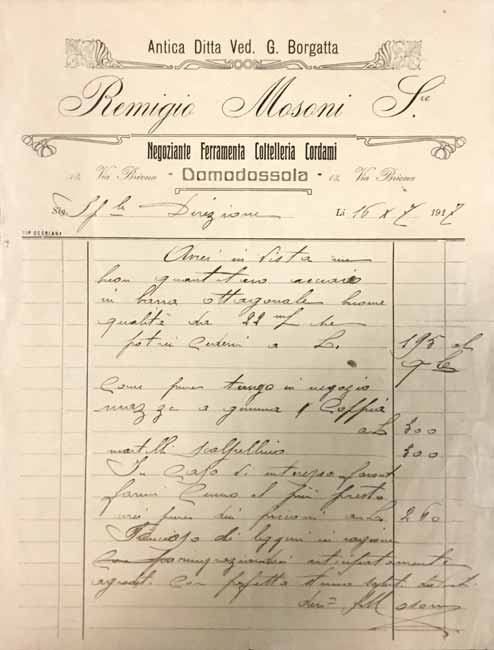 Antica Ditta Ved. G. Borgatta
Remigio Mosoni S.re
Negoziante Ferramenta Coltelleria Cordami
13, Via Briona - Domodossola - 13, Via Briona
Sig. Sp.le Direzione Li 16 X 7 1917
TIP. OSSOLANA
Avrei in vista un
buon quantitativo acciaio
in barra ottagonale buone
qualità da 22 m/ che
potrei cedervi a L. 195 al
q.le
Come pure tengo in negozio
mazze a gomma
a L 300
martelli scalpellino 300
In caso di interesse
farmi cenno al più presto
avrei pure dei picconi a L. 260
di leggervi in
con perfetta stima